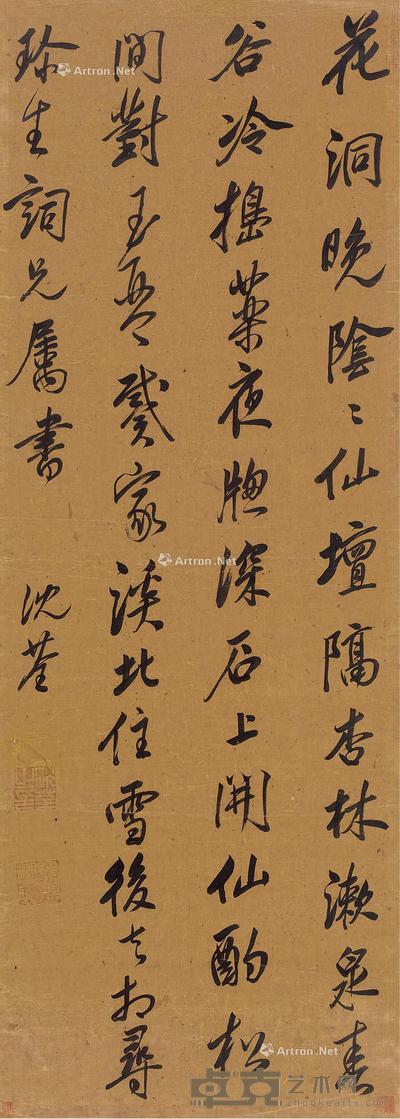 花洞晚陰〻仙壇隔杏林漱泉春
谷冷搗藥夜牕深石上開仙酌松
間對玉琴戴家溪北住雪後去相尋
珍生詞兄屬書 沈荃
Artron.Net
Artron.Net
Artron.Net
卓克艺术网